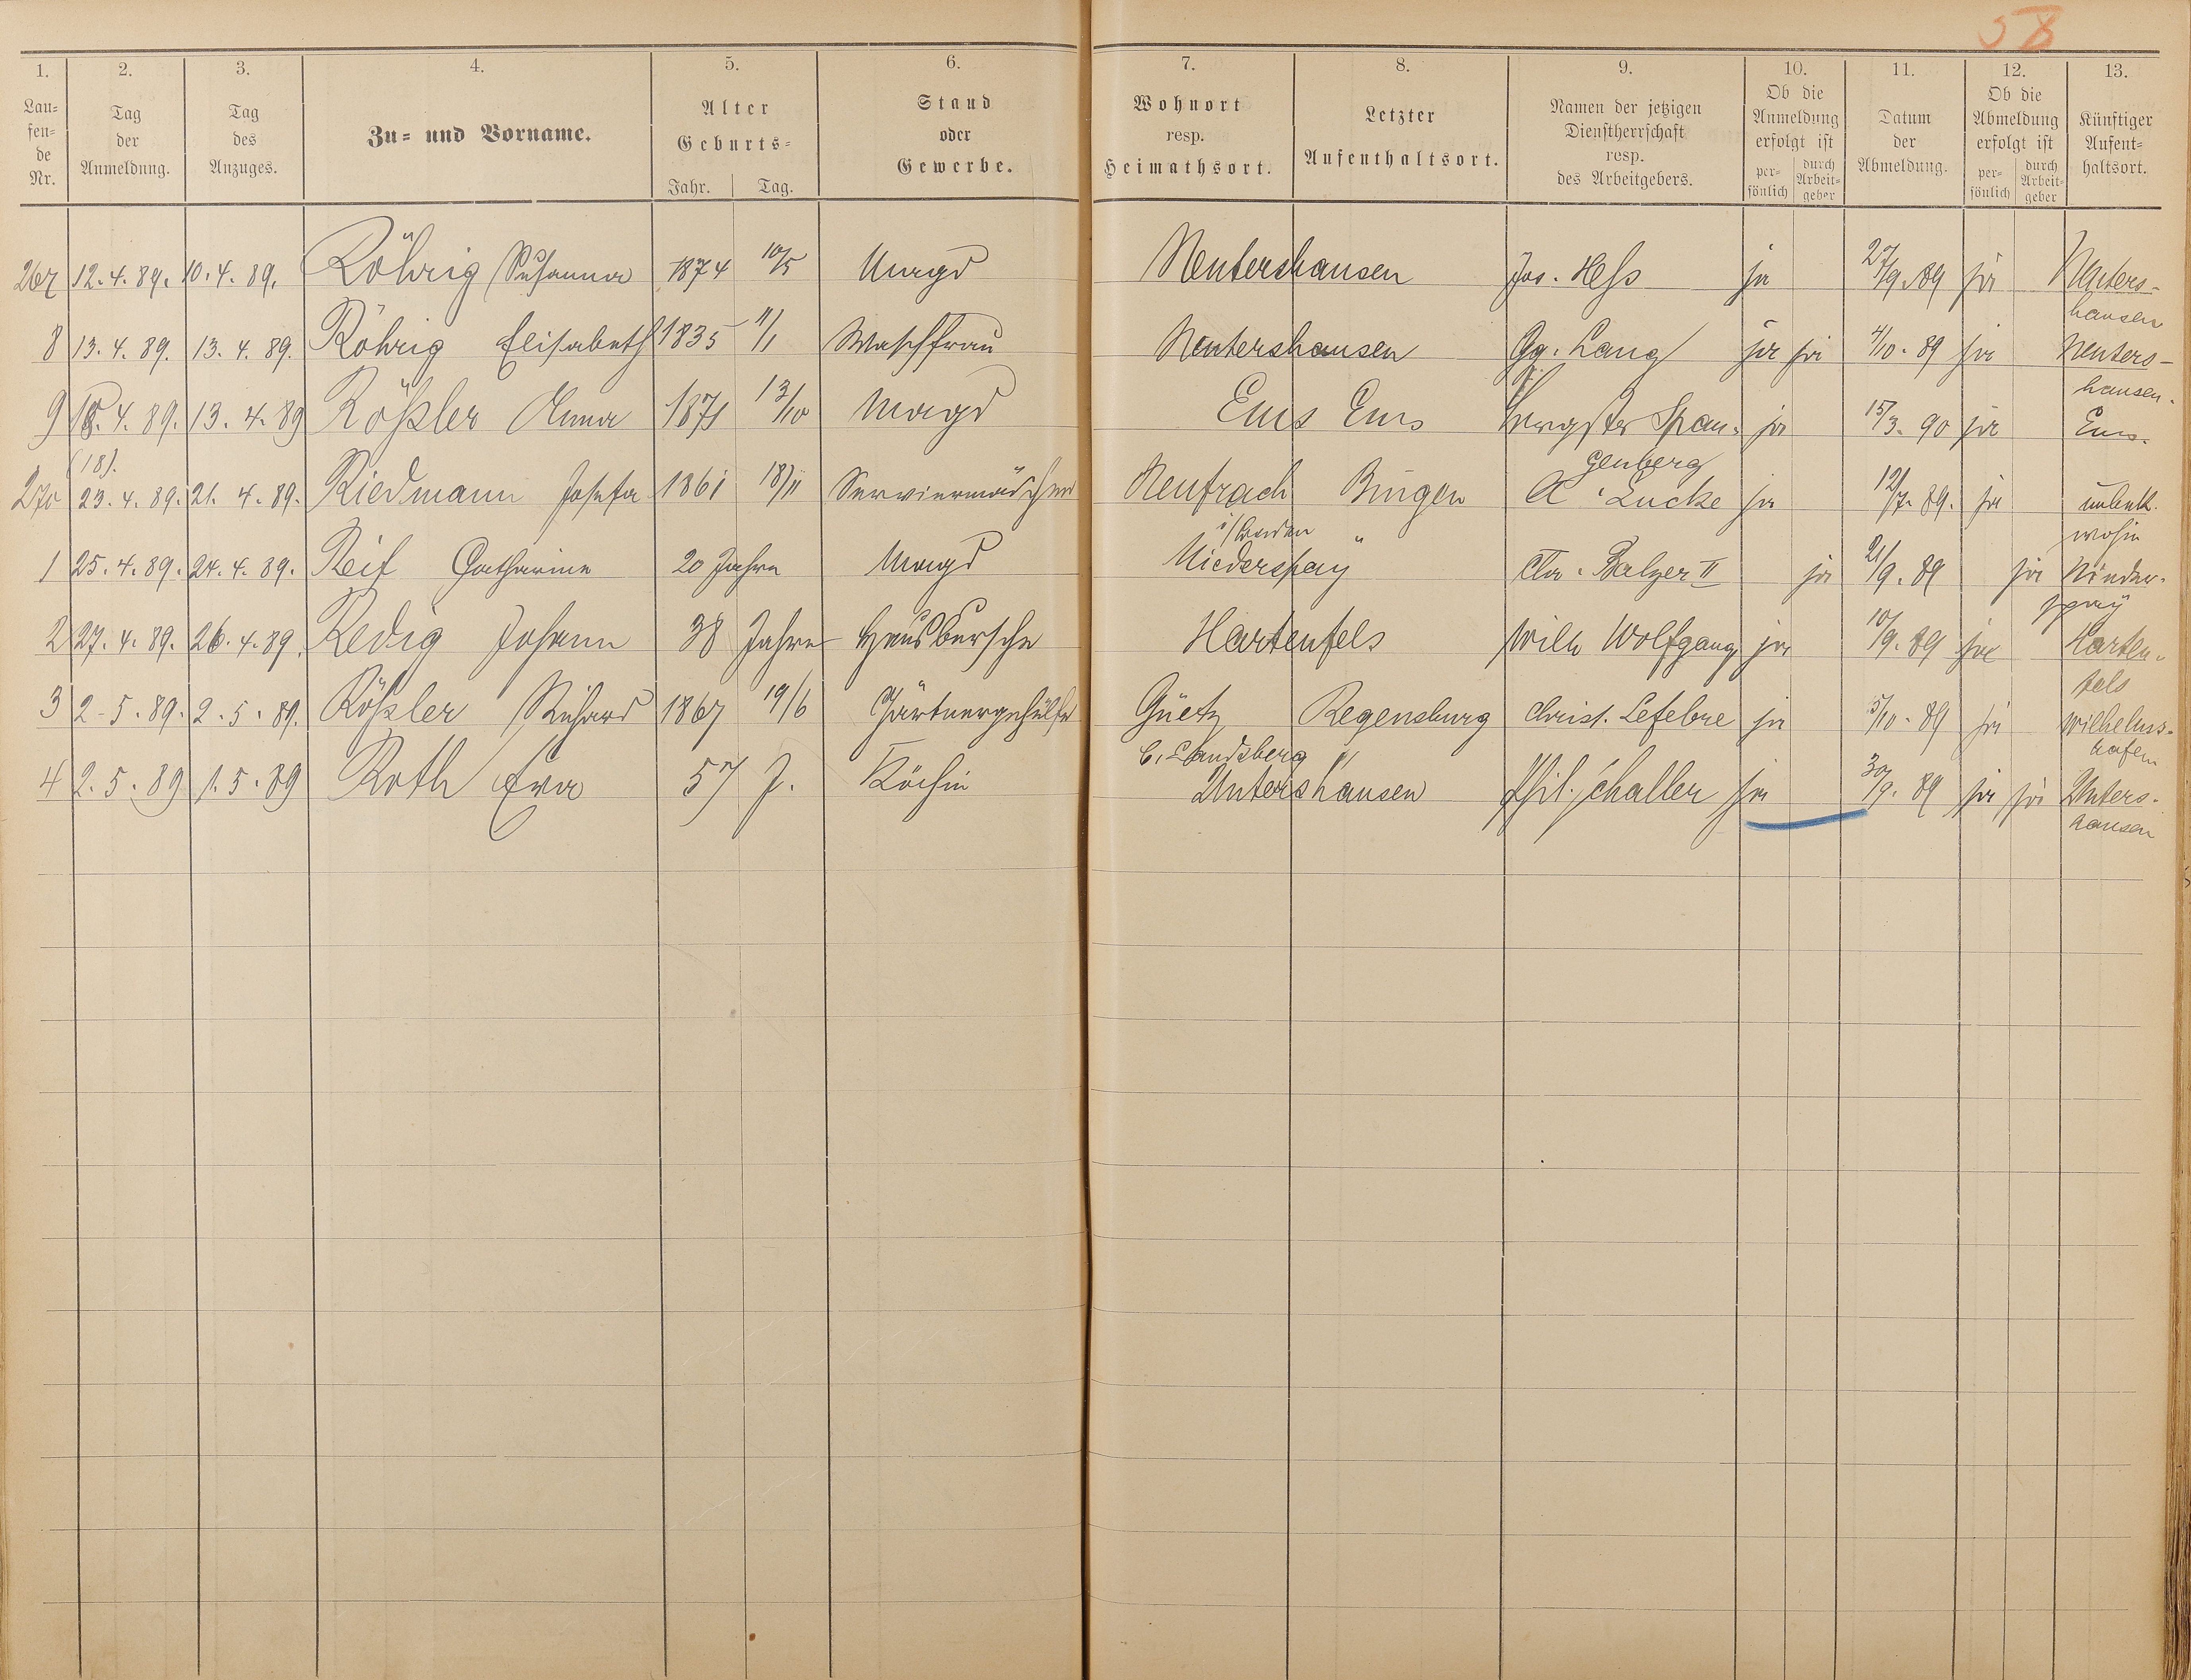 58
1. 2. 3. 4. 5. 6. 7. 8. 9. 10. 11. 12. 13.
Lau=
fen=
de
Nr.
Tag
der
Anmeldung.
Tag
des
Anzuges.
Zu= und Vorname.
Alter
Geburts=
Jahr. Tag.
Stand
oder
Gewerbe.
Wohnort
resp.
Heimathsort.
Letzter
Aufenthaltsort.
Namen der jetzigen
Dienstherrschaft
resp.
des Arbeitgebers.
Ob die
Anmeldung
erfolgt ist
per=
sönlich
durch
Arbeit=
geber
Datum
der
Abmeldung.
Ob die
Abmeldung
erfolgt ist
per=
sönlich
durch
Arbeit=
geber
Künftiger
Aufent=
haltsort.
267 12.4.89. 10.4.89. Röhrig Susanna 1874 10/5 Magd Nentershausen Jos. Heß ja 27/9.89 ja Nenters-
hausen
8 13.4.89. 13.4.89. Röhrig Elisabeth 1835 11/1 Waschfrau Nentershausen Gg. Lang ja ja 4/10.89 ja Nenters-
hausen.
9 18.4.89. 13.4.89 Rößler Anna 1871 13/10 Magd Ems Ems Span- ja 15/3.90 ja Ems.
(18). genberg
270 23.4.89. 21.4.89. Riedmann Josefa 1861 18/11 Serviermädchen Neufrach Bingen A. Lucke ja 12/7.89. ja unbek.
i/Baden " wohin
1 25.4.89. 24.4.89. Reif Catharine 20 Jahre Magd Niederspay Balzer II ja 21/9.89 ja Nieder-
spay
2 27.4.89. 26.4.89. Redig Johann 38 Jahre Hausbursche Hartenfels Wilh Wolfgang ja 10/9.89 ja Harten-
fels
3 2.5.89. 2.5.89. Rößler Richard 1867 19/6 Gärtnergehülfe Güetz Regensburg Christ. Lefebre ja 5/10.89 ja Wilhelms-
b. Landsberg hafen
4 2.5.89 1.5.89 Roth Eva 57 J. Köchin Untershausen Phil. Schaller ja 30/9.89 ja ja Unters-
hausen